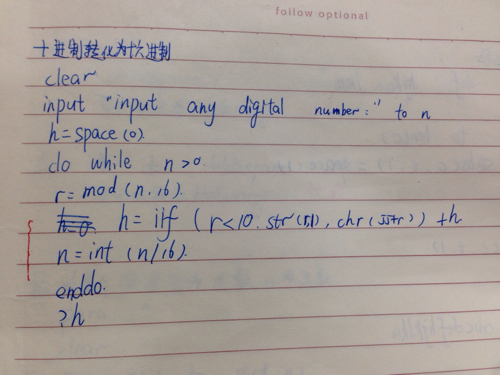 follow optional
十进制转化为十六进制
clear
input "input any digital number:" to n
h=space(0).
do while n>0.
r=mod(n,16).
h=iif(r<10.str(r,1),chr(55+r))+h
n=int(n/16).
enddo.
?h